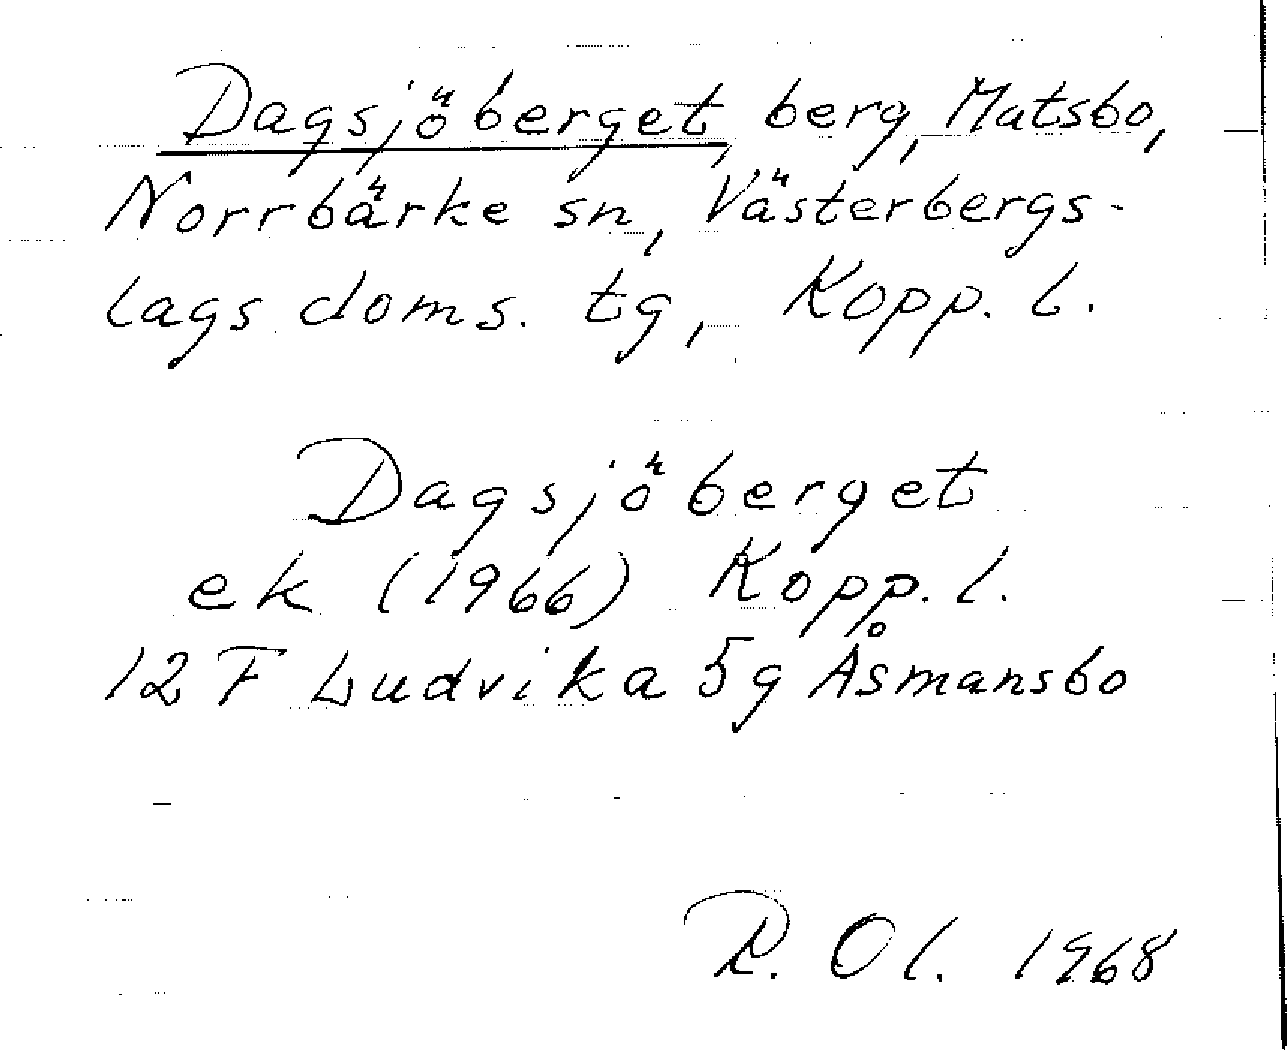 Dagsjöberget, berg, Matsbo,
Norrbärke sn, Västerbergs-
lags doms. tg, Kopp. l.
Dagsjöberget
ek (1966) Kopp. l.
12 F Ludvika 5g Åsmansbo
R. Ol. 1968